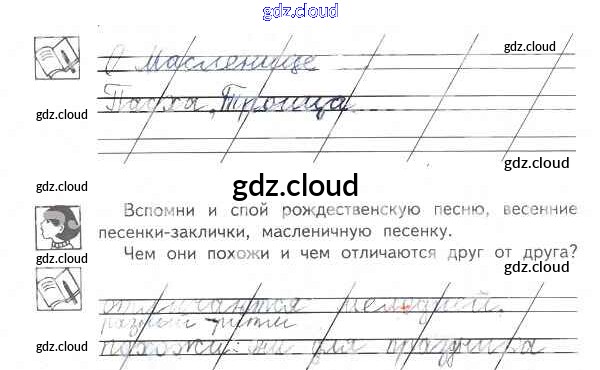 gdz.cloud
О Масленице
gdz.cloud
Пасха, Троица
gdz.cloud
gdz.cloud
gdz.cloud
gdz.cloud
Вспомни и спой рождественскую песню, весенние
песенки-заклички, масленичную песенку.
Чем они похожи и чем отличаются друг от друга?
gdz.cloud
gdz.cloud
отличаются мелодией,
разный ритм
похожи: они для праздника
gdz.cloud
gdz.cloud